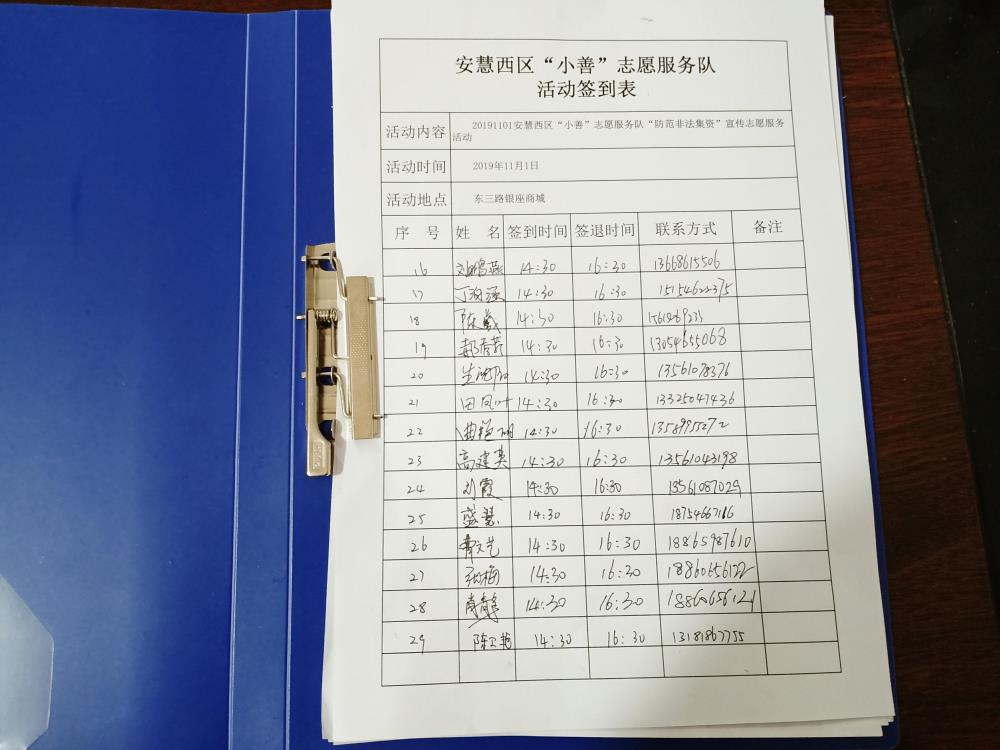 安慧西区“小善”志愿服务队
活动签到表
活动内容 20191101安慧西区“小善”志愿服务队“防范非法集资”宣传志愿服务
活动
活动时间 2019年11月1日
活动地点 东三路银座商城
序 号 姓 名 签到时间 签退时间 联系方式 备注
16 刘鹏燕 14:30 16:30 13668615506
17 14:30 16:30 15154622375
18 14:30 16:30
19 14:30 16:30 13054655068
20 14:30 16:30 13561078376
21 田凤叶 14:30 16:30 13325047436
22 曲艳丽 14:30 16:30
23 高建英 14:30 16:30 13561043198
24 刘霞 14:30 16:30 13561087029
25 盛慧 14:30 16:30 18754667116
26 14:30 16:30 18865987610
27 14:30 16:30 18860656122
28 14:30 16:30 18860656121
29 陈卫艳 14:30 16:30 13181867755